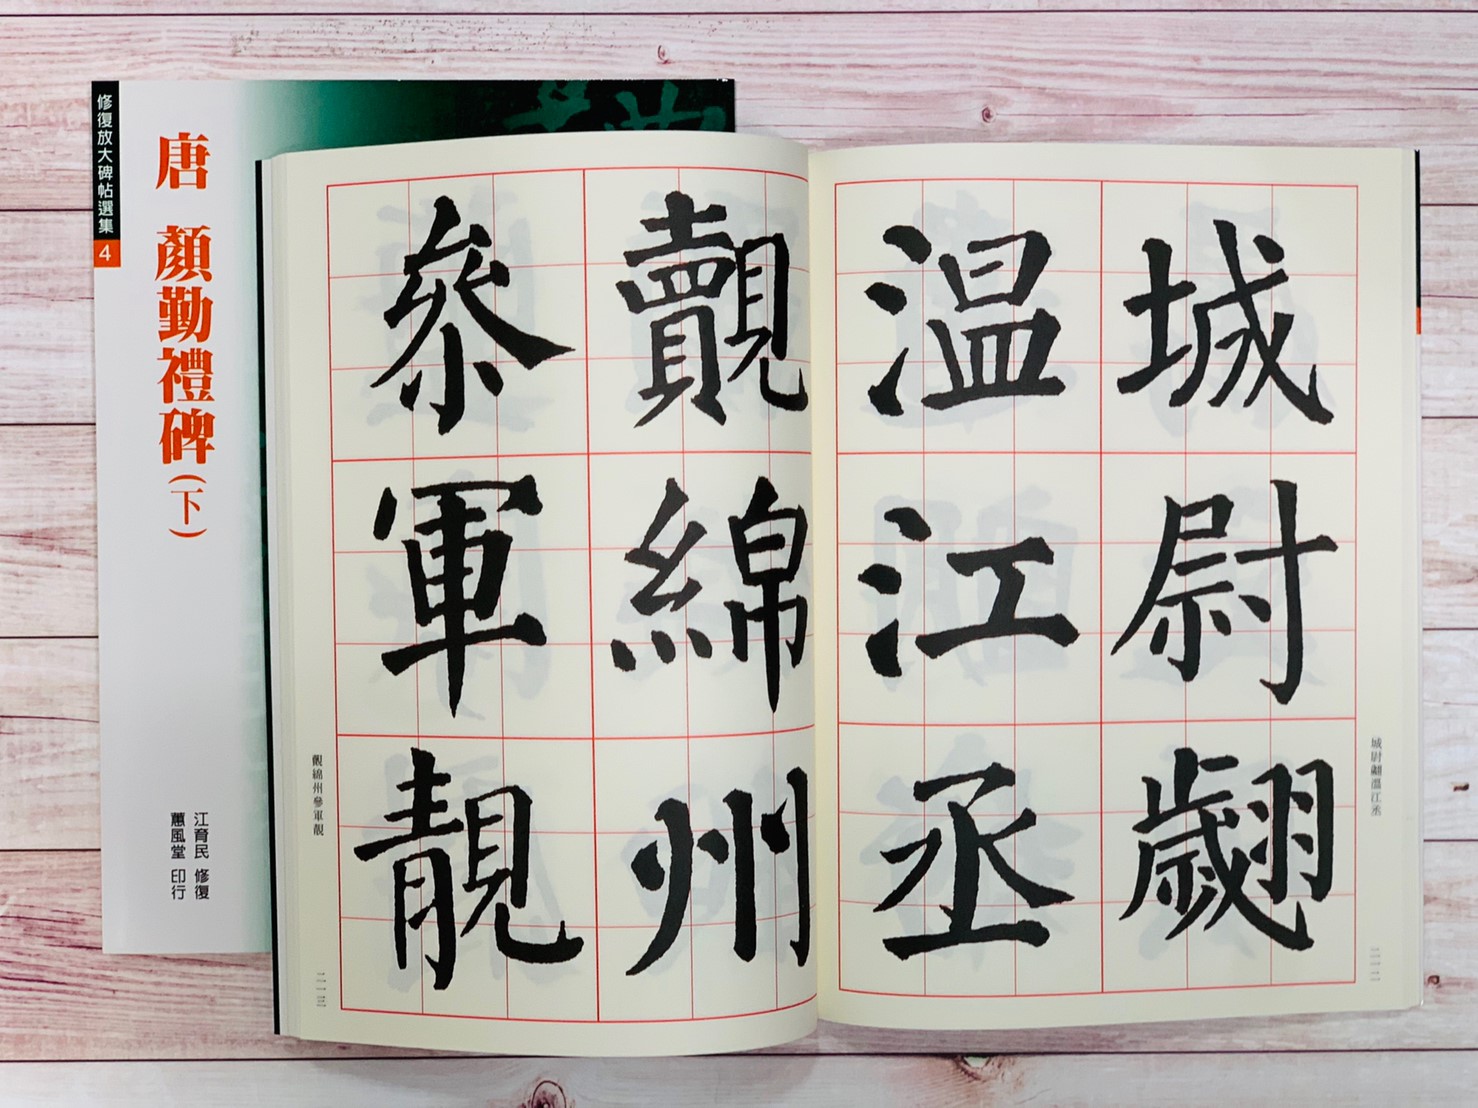 修復放大碑帖選集 4
唐 顏勤禮碑(下)
江育民 修復
蕙風堂 印行
城尉翽
温江丞
城尉翽溫江丞
二一二
覿綿州
參軍靚
覿綿州參軍靚
二一三